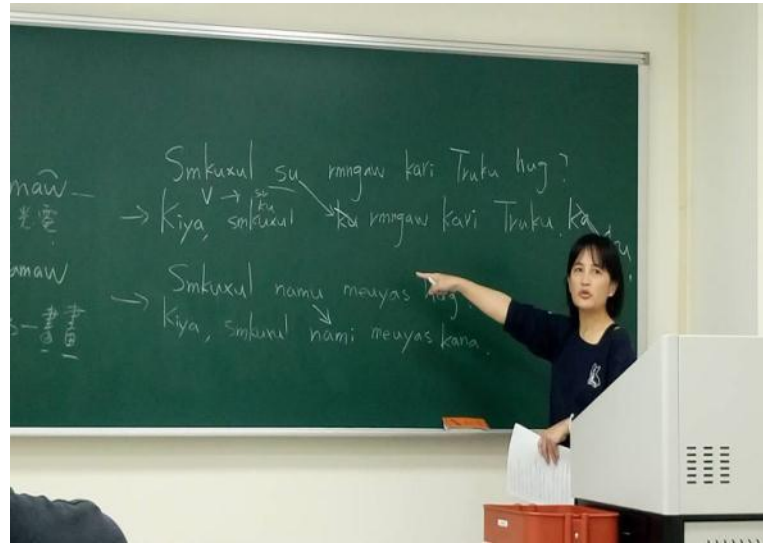 maŵ—
光電
amaw
s—畫畫
Smkuxul su rmngaw kari Truku hug?
V → su
ku
→ Kiya, smkuxul ku rmngaw kari Truku.
→ Smkuxul namu meuyas hug?
Kiya, smkuxul nami meuyas kana.